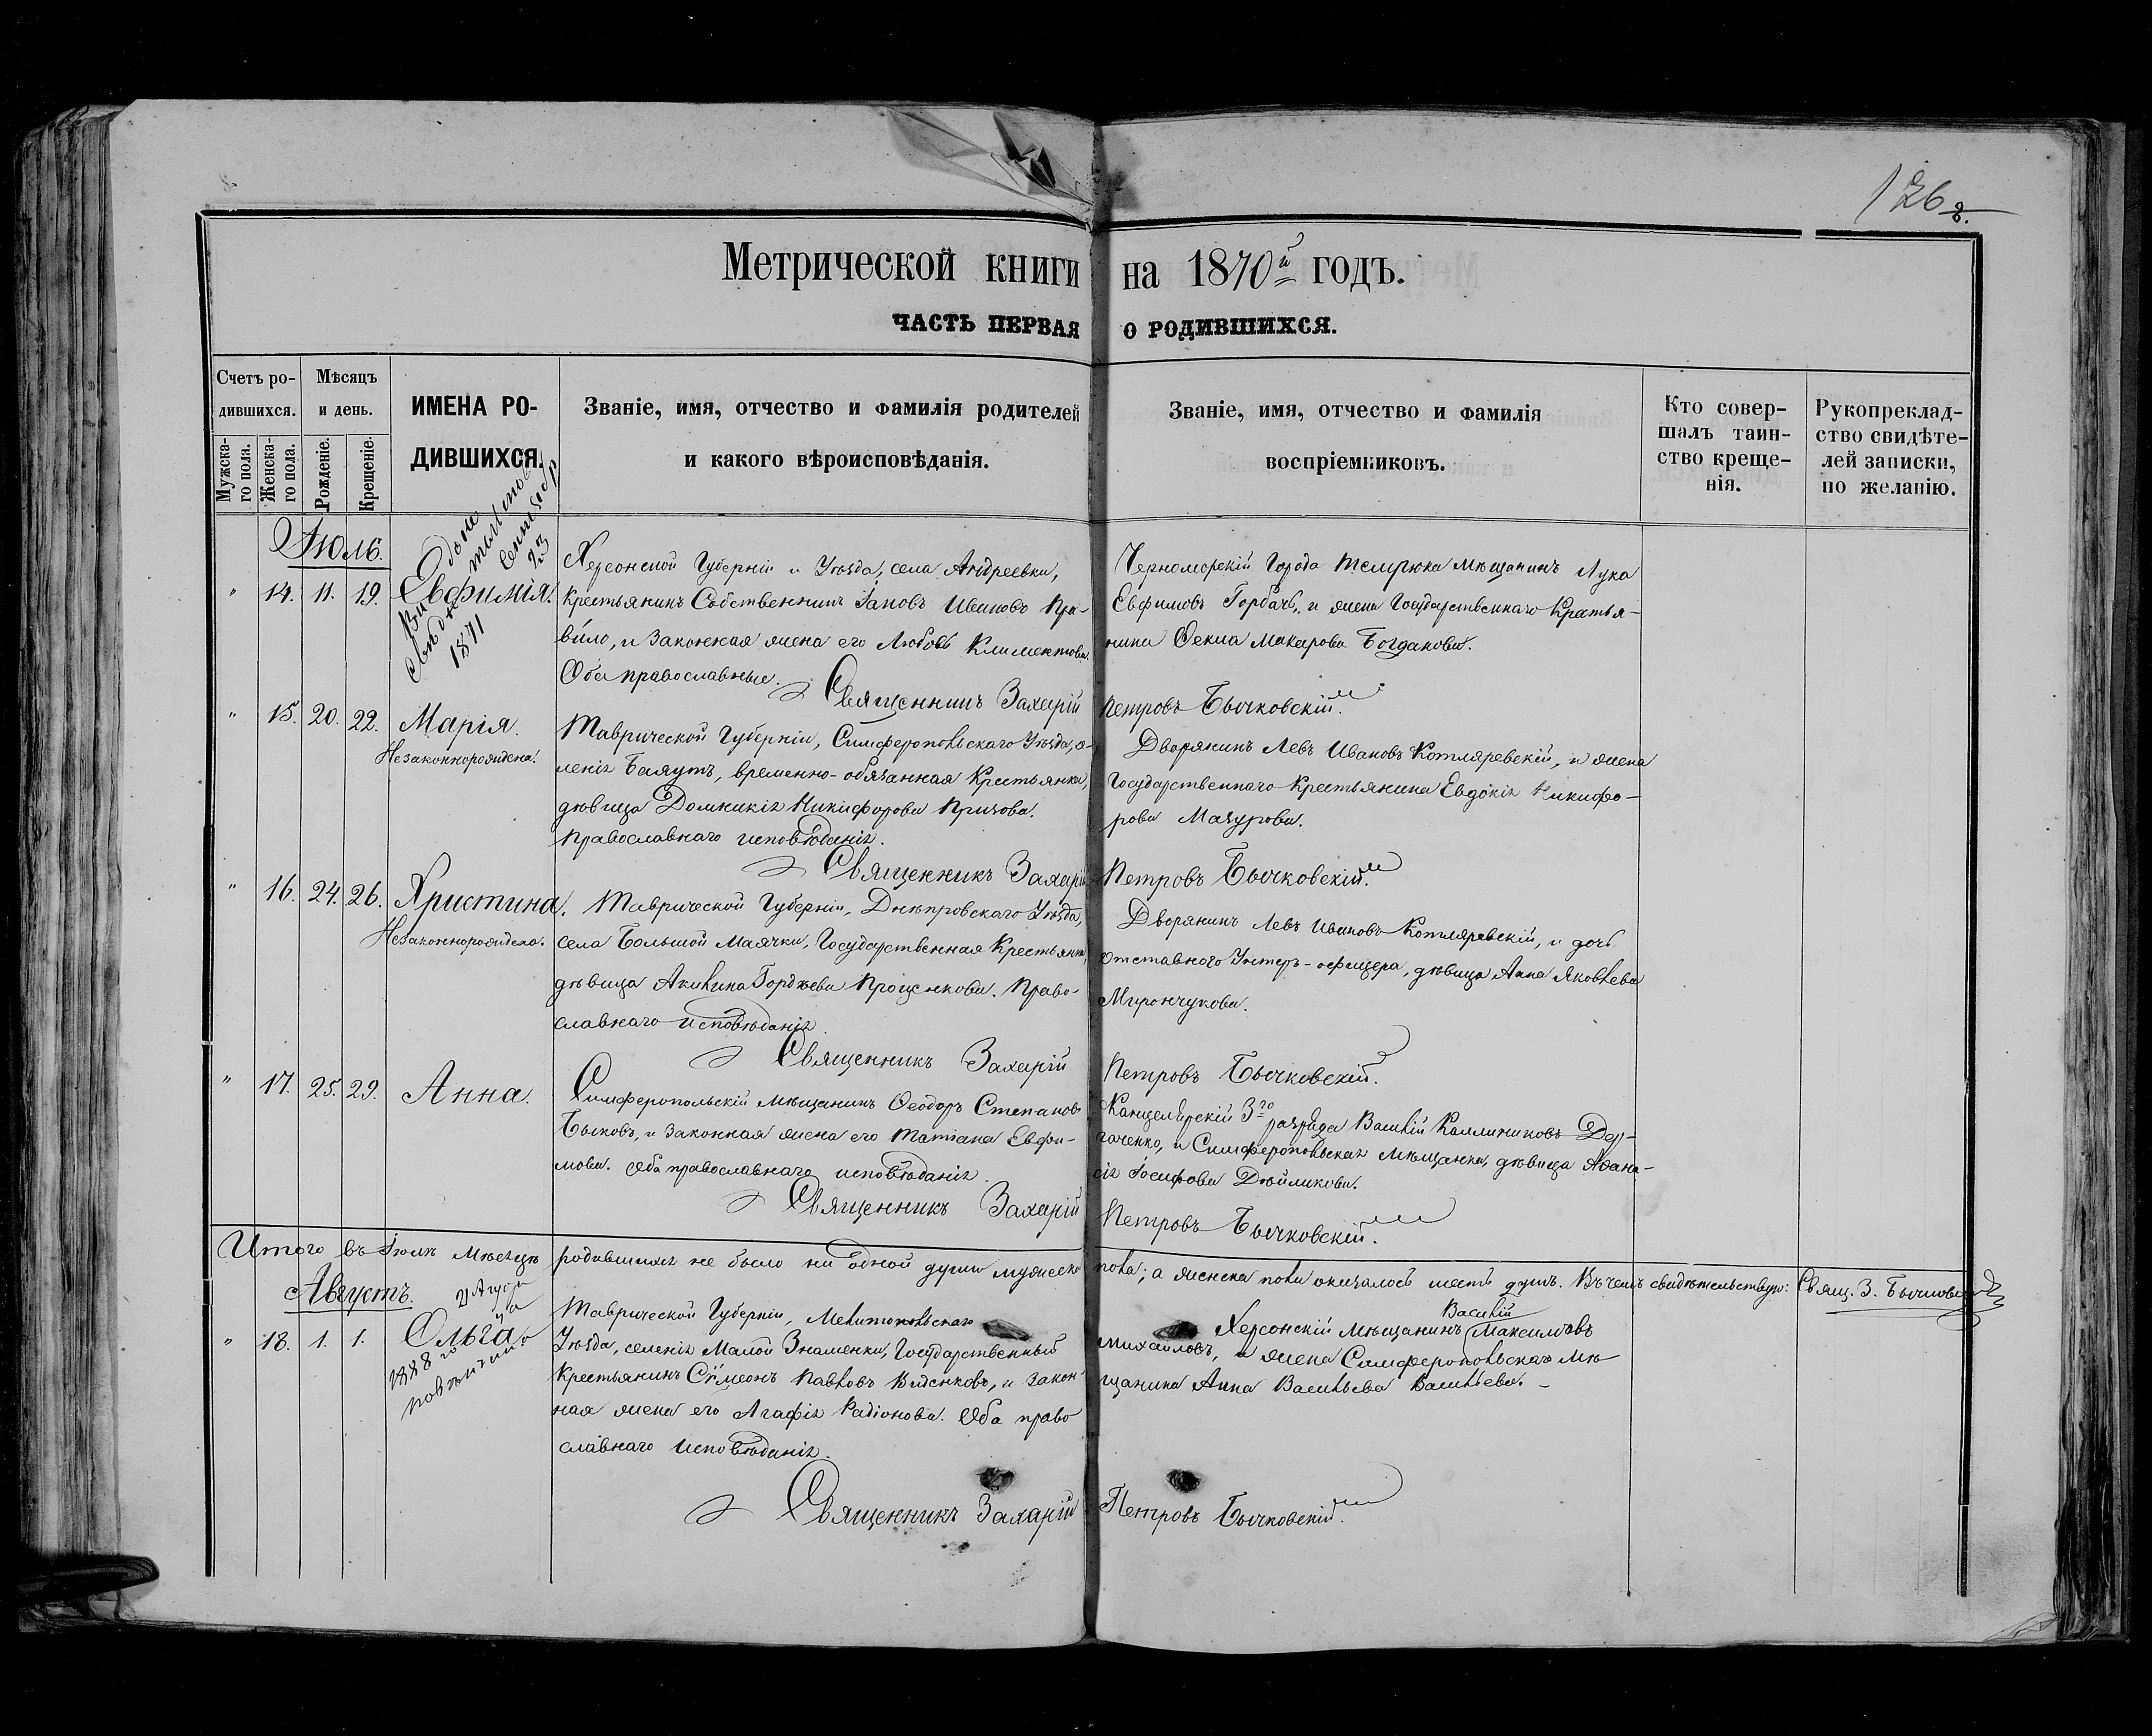 126
Метрической книги на 1870й годъ.
ЧАСТЬ ПЕРВАЯ О РОДИВШИХСЯ.
Счетъ ро-
дившихся.
Мужска-
го пола.
Женска-
го пола.
Мѣсяцъ
и день.
Рожденіе.
Крещеніе.
ИМЕНА РО-
ДИВШИХСЯ.
Званіе, имя, отчество и фамилія родителей
и какого вѣроисповѣданія.
Званіе, имя, отчество и фамилія
воспріемниковъ.
Кто совер-
шалъ таин-
ство креще-
нія.
Рукоприклад-
ство свидѣте-
лей записки,
по желанію.
Іюль.
" 14. 11. 19. Евфимія.
1871 23
Херсонской Губерніи и Уѣзда, села Андреевки,
Крестьянинъ Собственникъ Іаковъ Ивановъ Пра-
вило, и Законная жена его Любовь Климентова.
Оба православные.
Черноморскій Города Темрюка Мѣщанинъ Лука
Евфимовъ Горбачъ, и жена Государственнаго Крестья-
нина Ѳекла Макарова Богданова.
Священникъ Захарій Петровъ Бычковскій.
" 15. 20. 22. Марія.
Незаконнорождена.
Таврической Губерніи, Симферопольскаго Уѣзда, се-
ленія Баяутъ, временно-обязанная Крестьянка,
дѣвица Домникія Никифорова Призова.
Православнаго исповѣданія.
Дворянинъ Левъ Ивановъ Котляревскій, и жена
Государственнаго Крестьянина Евдокія Никифо-
рова Мазурова.
Священникъ Захарій Петровъ Бычковскій.
" 16. 24. 26. Христина.
Незаконнорождена.
Таврической Губерніи, Днѣпровскаго Уѣзда,
села Большой Маячки, Государственная Крестьянка,
дѣвица Акилина Гордѣева Проценкова. Право-
славнаго исповѣданія.
Дворянинъ Левъ Ивановъ Котляревскій, и дочь
Отставного Унтеръ-офицера, дѣвица Анна Яковлева
Мирончукова.
Священникъ Захарій Петровъ Бычковскій.
" 17. 25. 29. Анна.
Симферопольскій Мѣщанинъ Ѳеодоръ Степановъ
Быковъ, и Законная жена его Татіана Евфи-
мова. Оба православнаго исповѣданія.
Канцелярскій 3го разряда Василій Каллиниковъ Дер-
гаченко, и Симферопольская Мѣщанка, дѣвица Аѳана-
сія Іосифова Дюйликова.
Священникъ Захарій Петровъ Бычковскій.
Итого въ Іюлѣ мѣсяцѣ родившихся не было ни одной души мужеска пола; а женска пола оказалось шесть душъ. Въ чемъ свидѣтельствую: Свящ. З. Бычковскій
Августъ.
" 18. 1. 1. Ольга.
1888
Таврической Губерніи, Мелитопольскаго
Уѣзда, селенія Малой Знаменки, Государственный
Крестьянинъ Симеонъ Павловъ Виденковъ, и Закон-
ная жена его Агафія Радіонова. Оба право
славнаго исповѣданія.
Василій
Херсонскій Мѣщанинъ Максимовъ
Михайловъ, и жена Симферопольскаго Мѣ-
щанина Анна Васильева Васильева.
Священникъ Захарій Петровъ Бычковскій.